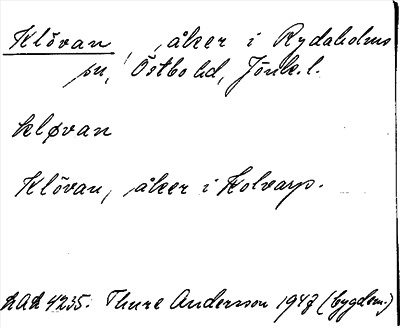 Klövan, åker i Rydaholms
sn, Östbo hd, Jönk.l.
kløvan
Klövan, åker i Kolvarp.
LAL 4235. Thure Andersson 1947 (bygdem.)